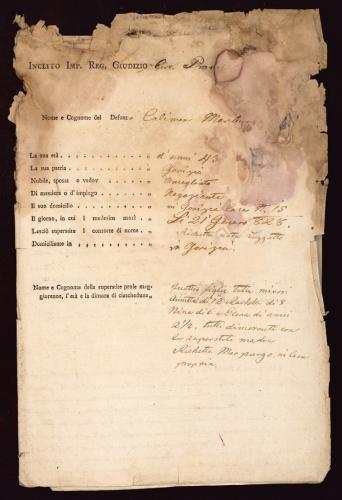 INCLITO IMP. REG. GIUDIZIO Civ. Prov
Nome e Cognome del Defunto
La sua età, d'anni 43
La sua patria, Gorizia
Nubile, sposa o vedov Coniugato
Di mestiere o d'impiego, Negoziante
Il suo domicilio, in Gorizia N. 15
Il giorno, in cui l medesim morì, li 21 1828.
Lasciò superstite l consorte di nome, Richetta nata Luzzatto
Domiciliante in in Gorizia
Nome e Cognome della superstite prole maggiorenne, l'età e la dimora di ciascheduno,
figlie tutte minori
Annetta di 12 Rachele di 8
Nina di 6 e Elena di anni
2½. tutti dimoranti con
la superstite madre
Richetta Morpurgo, in casa
propria.